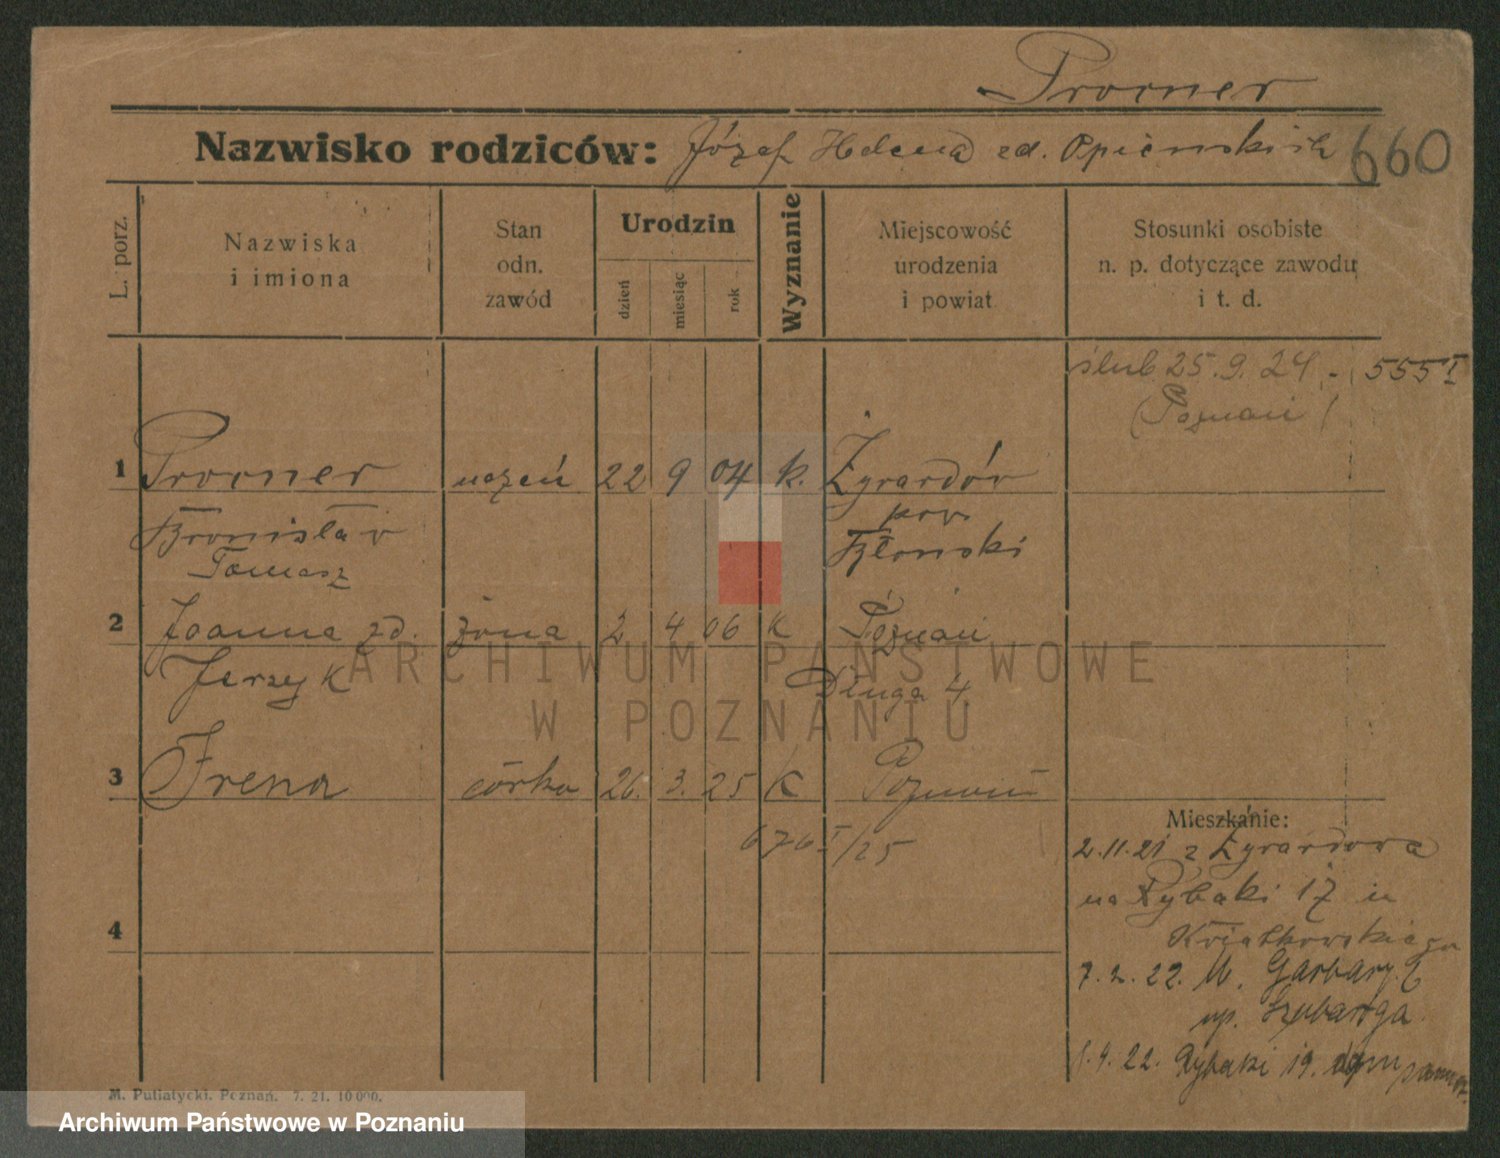 Prorner
Nazwisko rodziców: Józef Helena zd. Opieńskich 660
L. porz.
Nazwiska
i imiona
Stan
odn.
zawód
Urodzin
dzień
miesiąc
rok
Wyznanie
Miejscowość
urodzenia
i powiat
Stosunki osobiste
n. p. dotyczące zawodu
i t. d.
ślub 25.9.24. 555 I
(Poznań)
1 Prorner uczeń 22 9 04 k. Żyrardów
Bronisław pow.
Tomasz Błoński
2 Joanna zd. żona 2 4 06 k Poznań
Jerzyk Długa 4
ARCHIWUM PAŃSTWOWE
W POZNANIU
3 Irena córka 26. 3. 25 k Poznań
676 I/25
Mieszkanie:
2.11.21 z Żyrardowa
na Rybaki 17 u
Kwiatkowskiego
4
7.2.22. W. Garbary 6
np.
4.22. Rybaki 19.
M. Putiatycki, Poznań. 7. 21. 10 000.
Archiwum Państwowe w Poznaniu